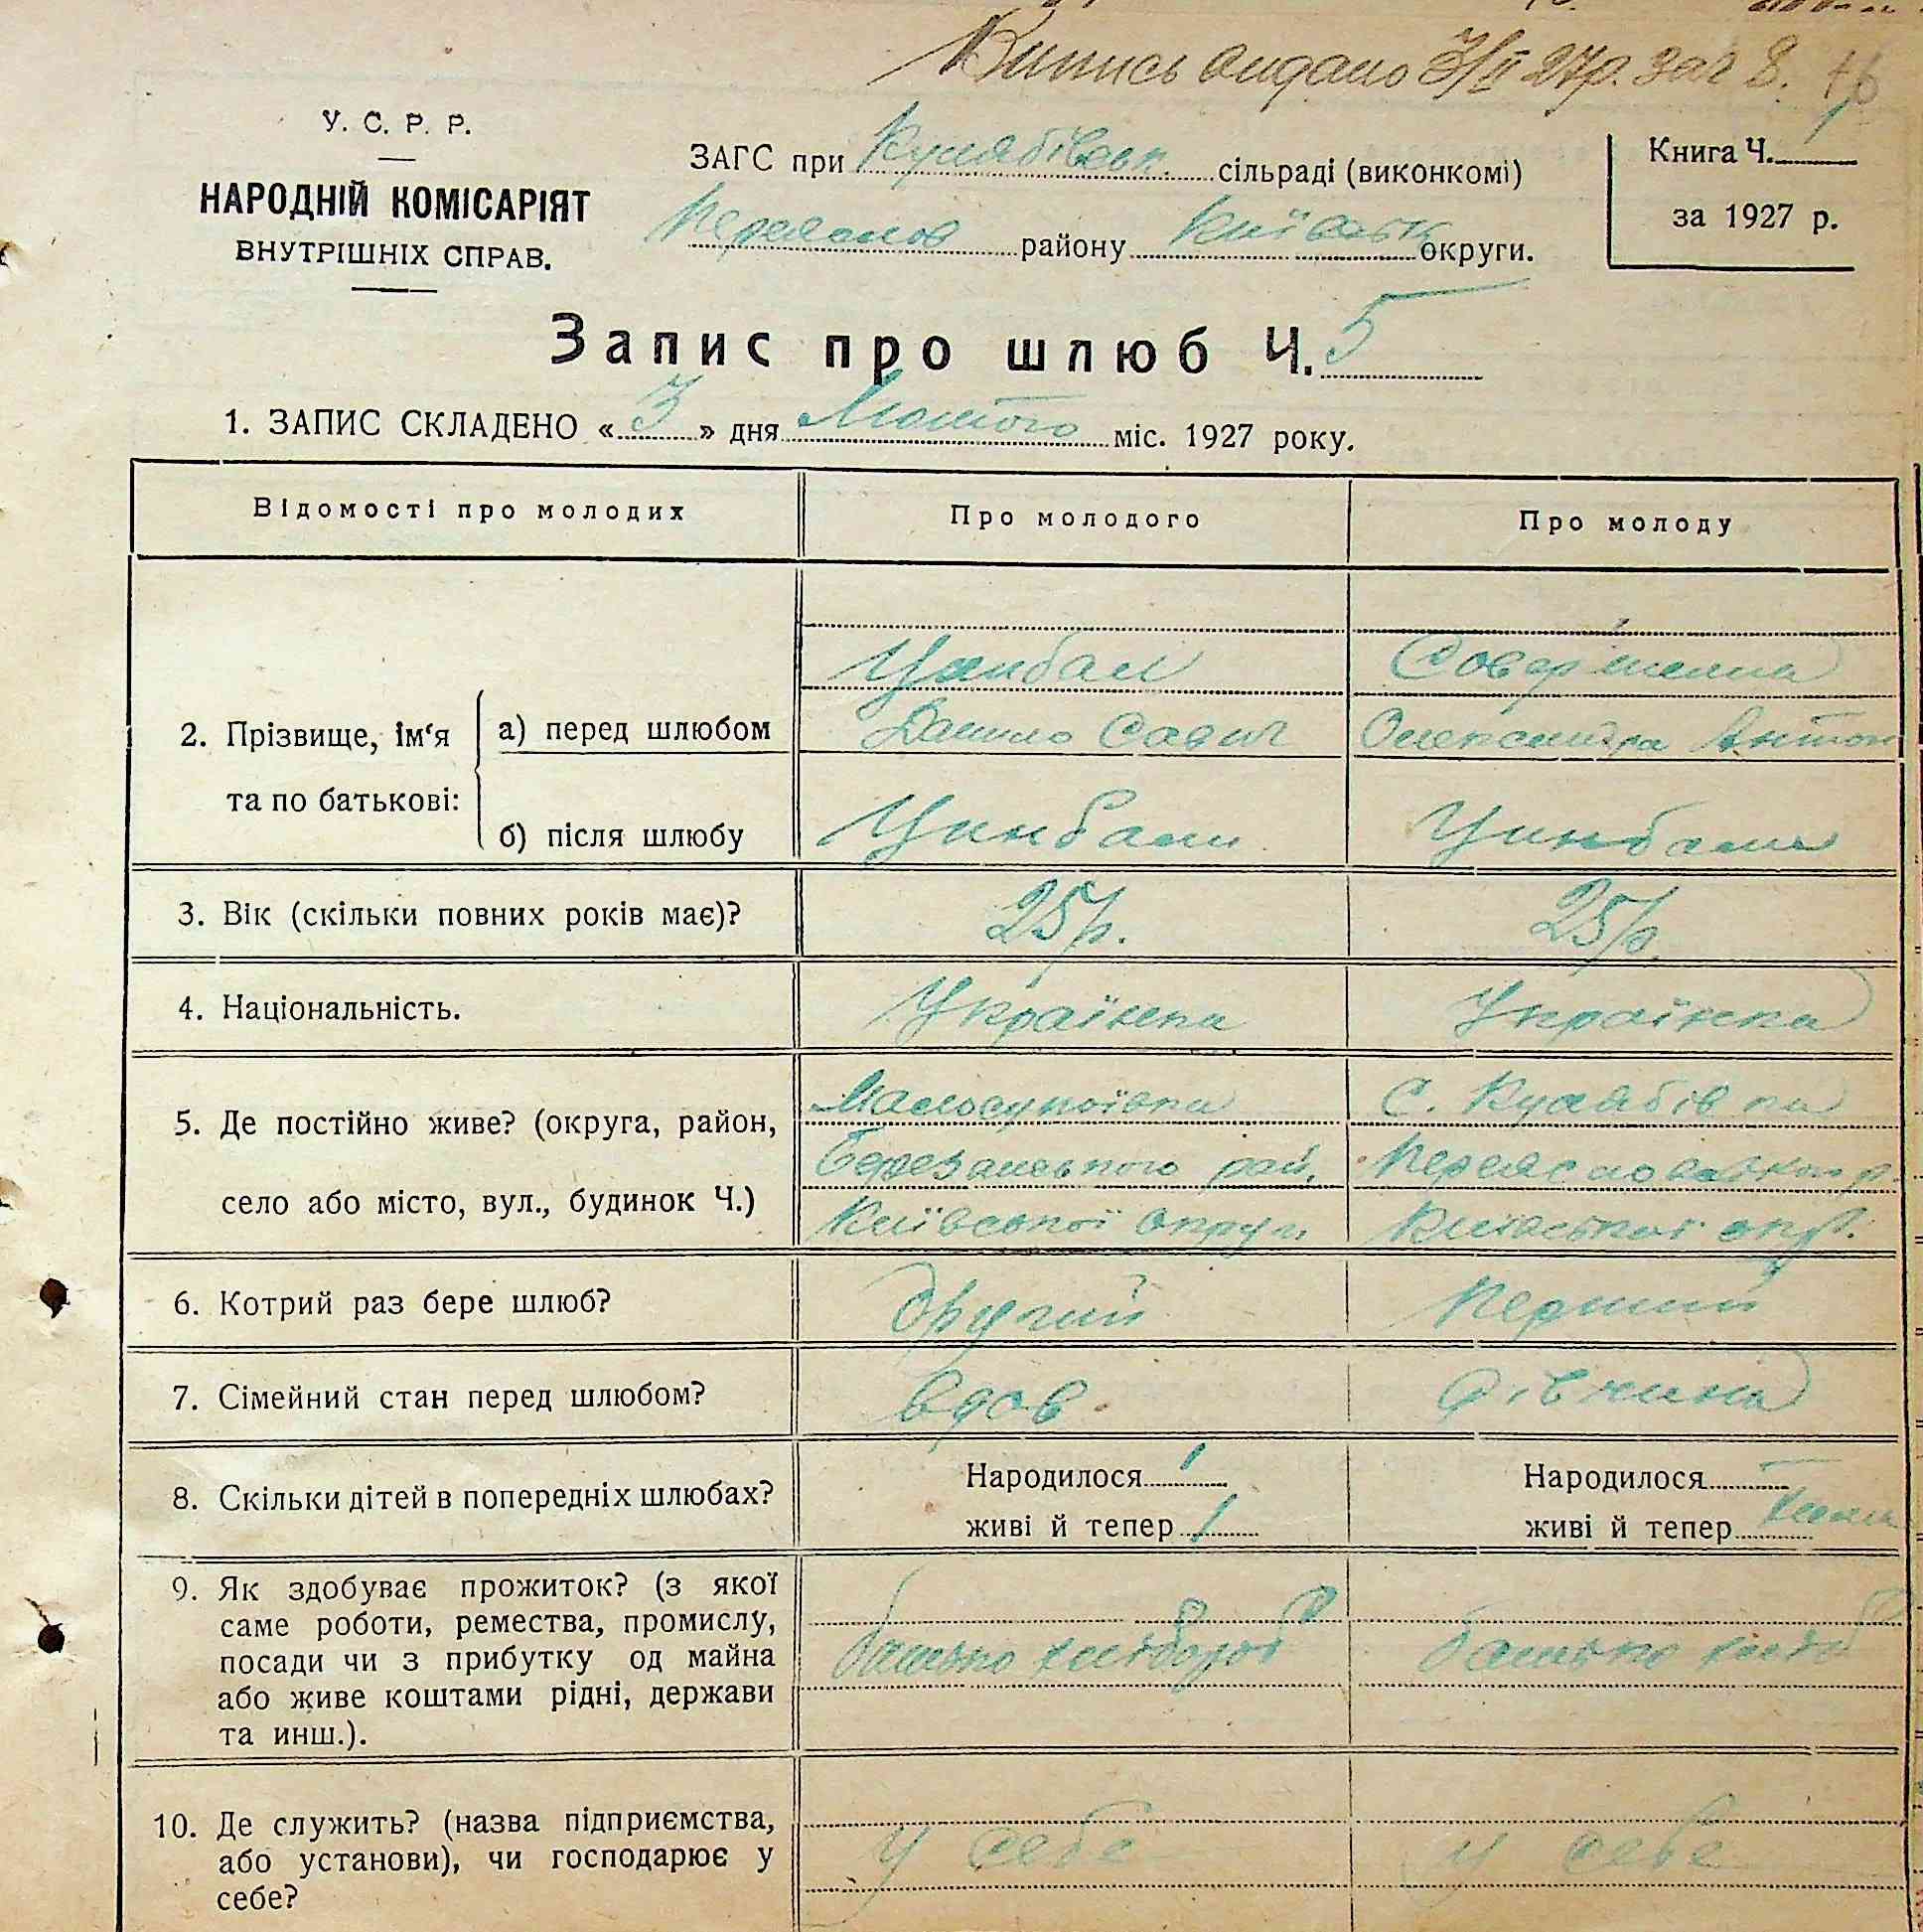 Випись видано 3/II 27р. за № 8.
У. С. Р. Р.
НАРОДНІЙ КОМІСАРІЯТ
ВНУТРІШНІХ СПРАВ.
ЗАГС при Кулябівськ. сільраді (виконкомі)
Переяслов району Київськ округи.
Книга Ч. 1
за 1927 р.
Запис про шлюб Ч. 5
1. ЗАПИС СКЛАДЕНО « 3 » дня Лютого міс. 1927 року.
Відомості про молодих Про молодого Про молоду
2. Прізвище, ім‘я та по батькові:
а) перед шлюбом
Цимбал
Данило Савич
Олександра Антон
б) після шлюбу Цимбали Цимбали
3. Вік (скільки повних років має)? 25 р. 25 р.
4. Національність. Українка Українка
5. Де постійно живе? (округа, район,
село або місто, вул., будинок Ч.)
Малосупоївка
Березанського рай.
Київської округи
С. Кулябівка
Переясловськог р.
Київської окр.
6. Котрий раз бере шлюб? другий Перший
7. Сімейний стан перед шлюбом? вдов. дівчина
8. Скільки дітей в попередніх шлюбах?
Народилося 1
живі й тепер 1
Народилося —
живі й тепер
9. Як здобуває прожиток? (з якої
саме роботи, ремества, промислу,
посади чи з прибутку од майна
або живе коштами рідні, держави
та инш.).
батько хлібороб
батько хліб
10. Де служить? (назва підприємства,
або установи), чи господарює у
себе?
у себе
у себе